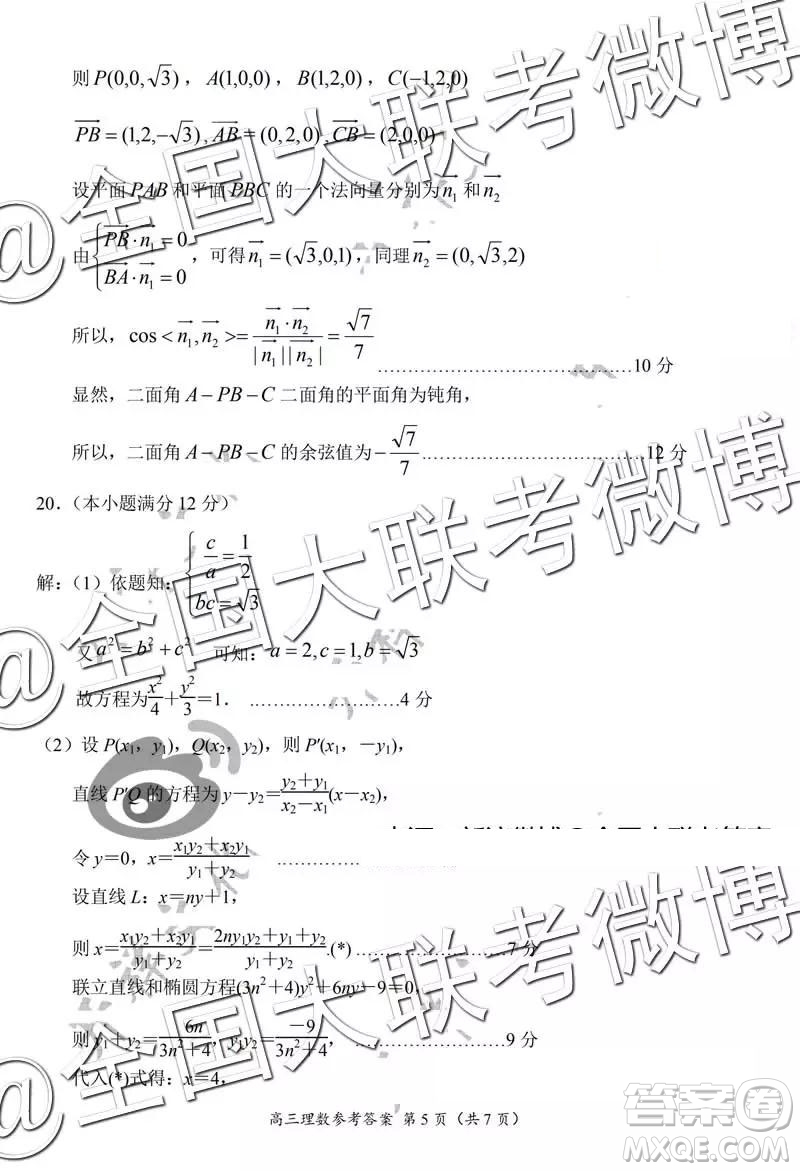 则 P(0,0,√3)，A(1,0,0)，B(1,2,0)，C(−1,2,0)
PB=(1,2,−√3),AB=(0,2,0),CB=(2,0,0)
设平面 PAB 和平面 PBC 的一个法向量分别为 n₁ 和 n₂
由{PB·n₁=0, BA·n₁=0，可得 n₁=(√3,0,1)，同理 n₂=(0,√3,2)
所以，cos<n₁,n₂>=n₁·n₂/|n₁||n₂|=√7/7 ……………………………………10 分
显然，二面角 A−PB−C 二面角的平面角为钝角，
所以，二面角 A−PB−C 的余弦值为−√7/7 ……………………………12 分
20．（本小题满分 12 分）
解：（1）依题知：{c/a=1/2, bc=√3
又 a²=b²+c² 可知：a=2,c=1,b=√3
故方程为x²/4+y²/3=1． ……………………4 分
（2）设 P(x₁，y₁)，Q(x₂，y₂)，则 P′(x₁，−y₁)，
直线 P′Q 的方程为 y−y₂=y₂+y₁/x₂−x₁(x−x₂)，
令 y=0，x=x₁y₂+x₂y₁/y₁+y₂
设直线 L：x=ny+1，
则 x=x₁y₂+x₂y₁/y₁+y₂=2ny₁y₂+y₁+y₂/y₁+y₂.(*) ……………………7 分
联立直线和椭圆方程(3n²+4)y²+6ny−9=0，
则 y₁+y₂=6n/3n²+4，y₁y₂=−9/3n²+4， ……………………9 分
代入(*)式得：x=4，
高三理数参考答案 第 5 页（共 7 页）
@全国大联考微博
@全国大联考微博
@全国大联考微博
答案圈
MXQE.COM